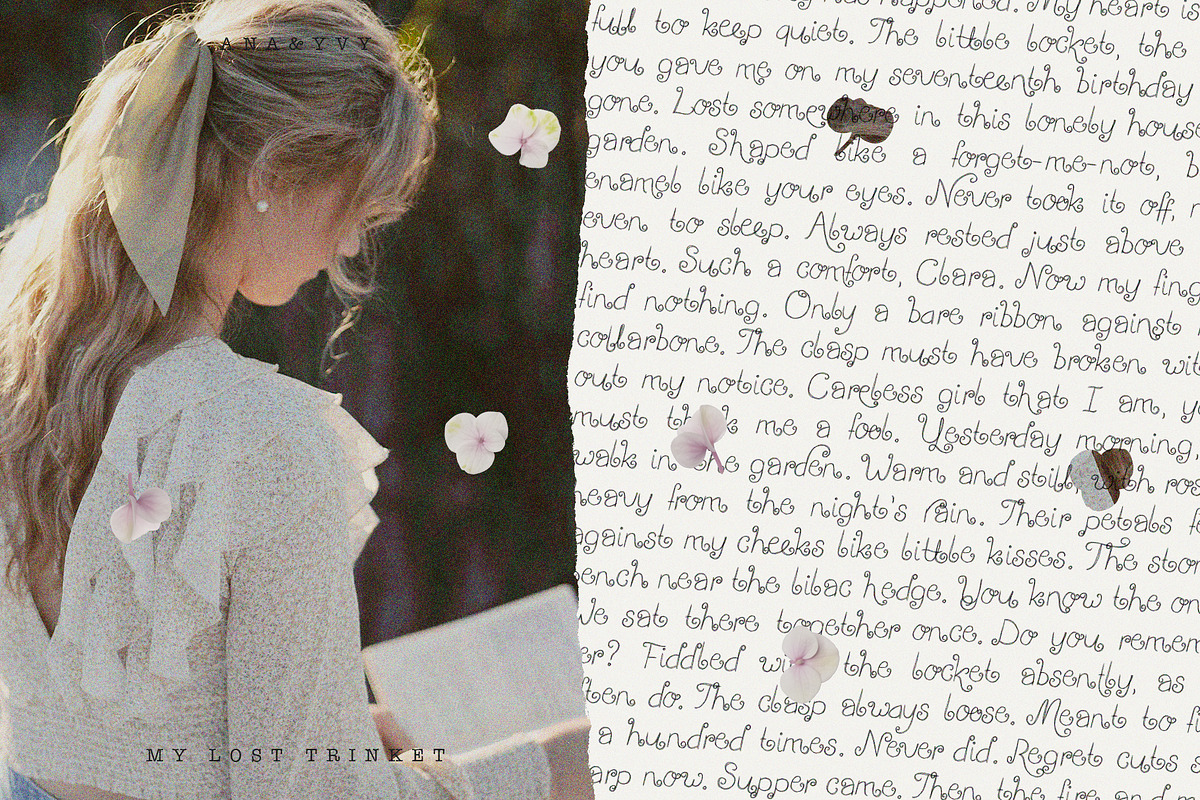 ANA&YVY
MY LOST TRINKET
happened. My heart is
full to keep quiet. The little locket, the
you gave me on my seventeenth birthday
gone. Lost somewhere in this lonely hous
garden. Shaped like a forget-me-not, b
enamel like your eyes. Never took it off, n
even to sleep. Always rested just above
heart. Such a comfort, Clara. Now my fing
find nothing. Only a bare ribbon against
collarbone. The clasp must have broken wit
out my notice. Careless girl that I am, y
must me a fool. Yesterday morning,
walk in the garden. Warm and still, with ros
heavy from the night's rain. Their petals fe
against my cheeks like little kisses. The ston
bench near the lilac hedge. You know the on
We sat there together once. Do you remem
er? Fiddled the locket absently, as
ten do. The clasp always loose. Meant to fi
a hundred times. Never did. Regret cuts s
arp now. Supper came. Then the fire and m